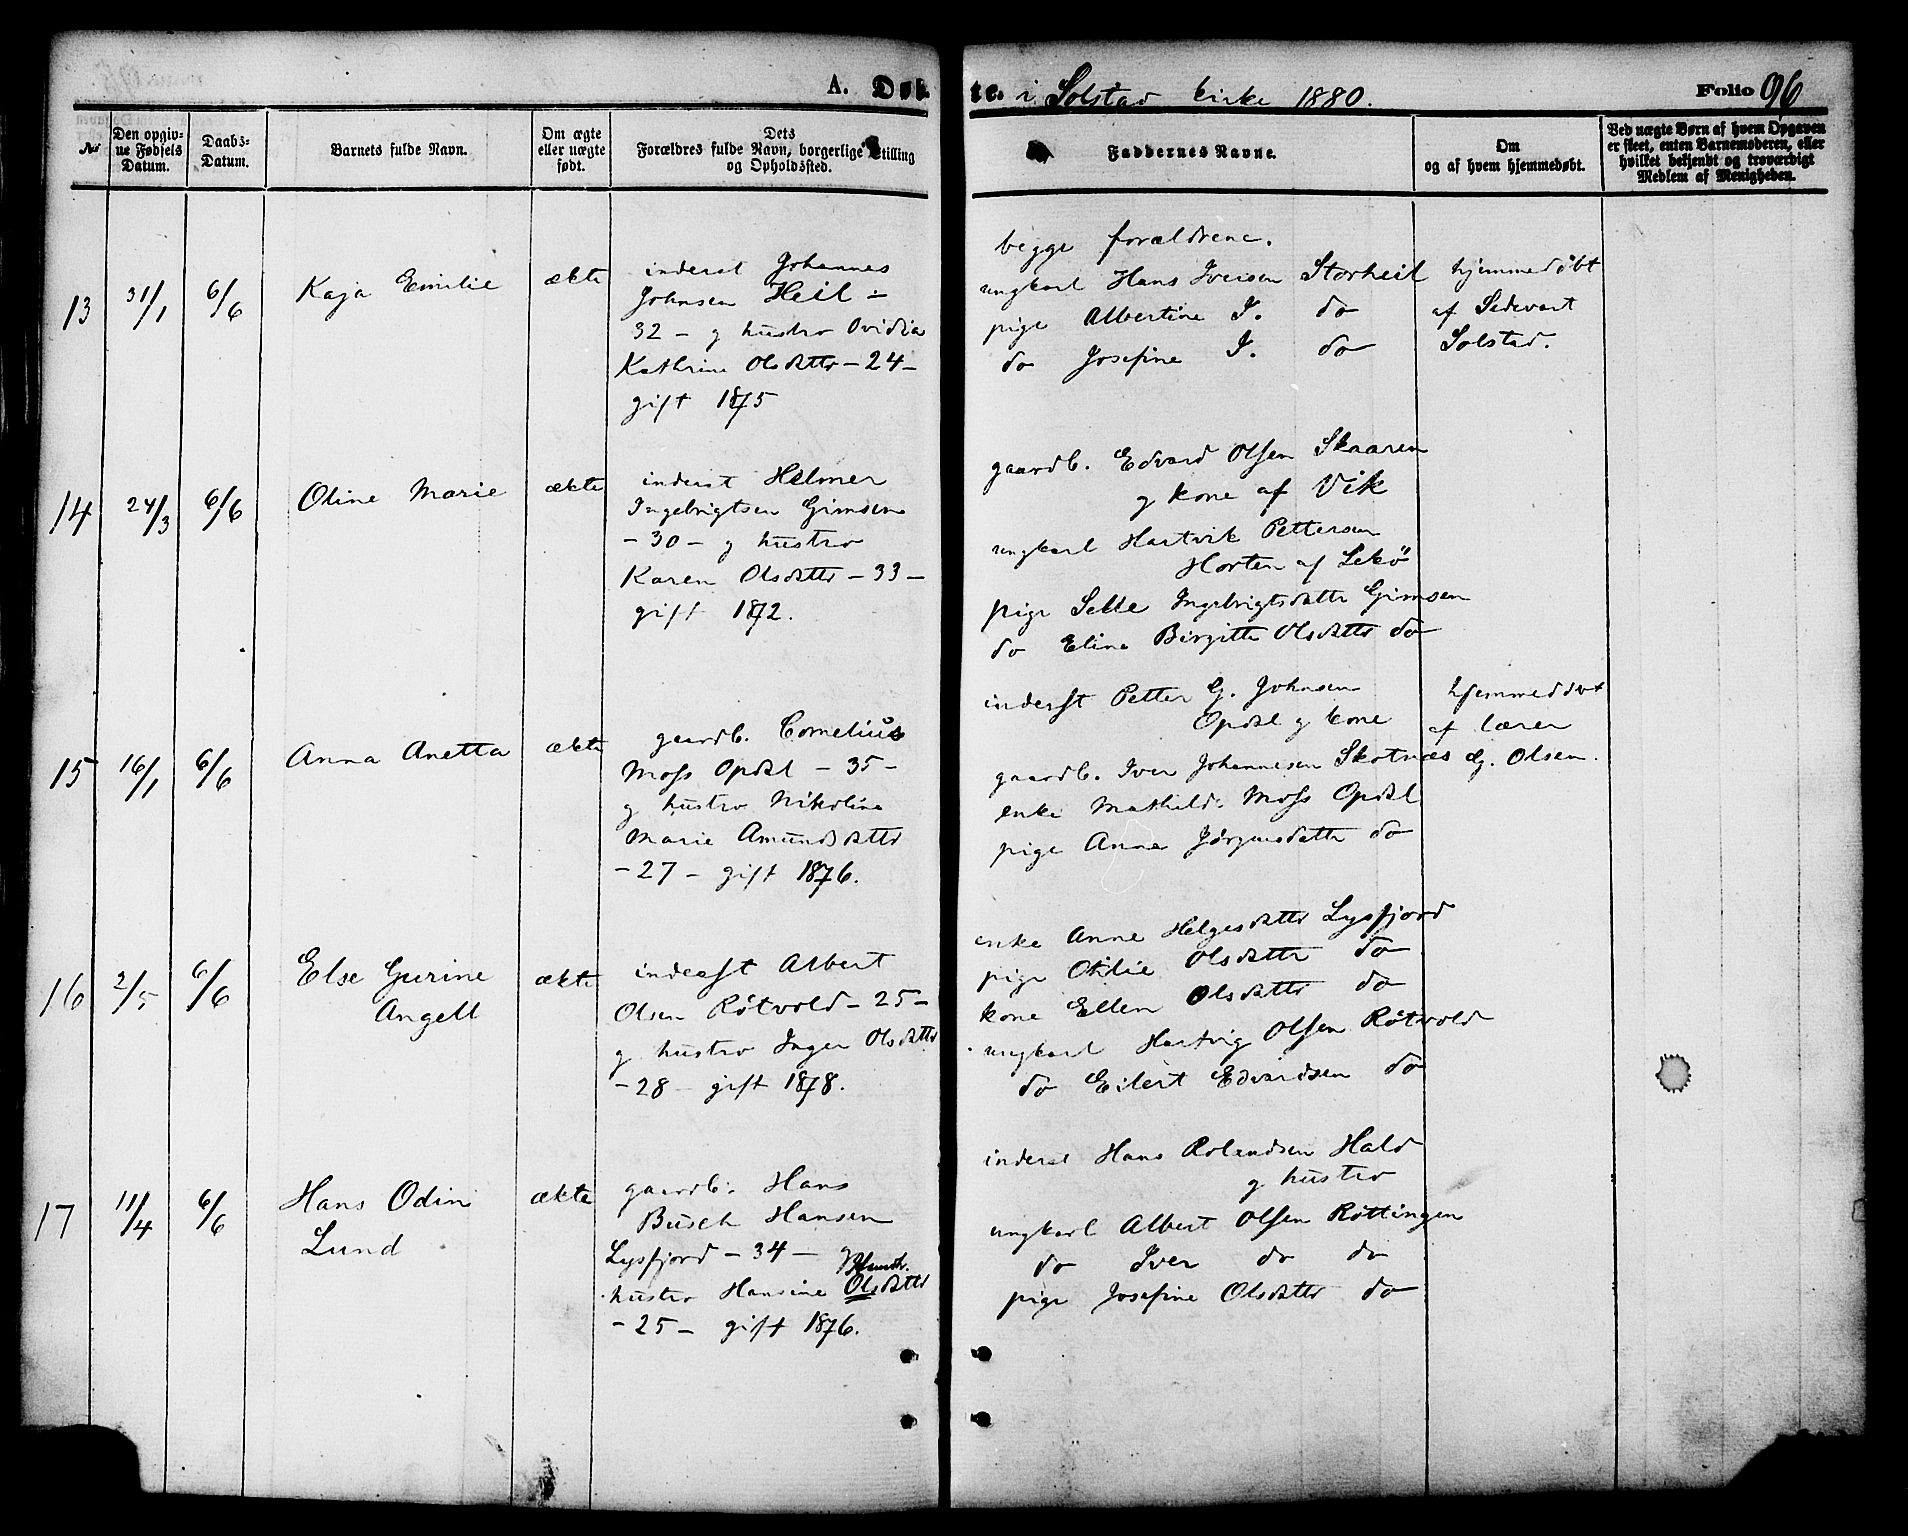 A. Døbte. i Solstad kirke 1880.
Folio 96
No
Den opgivne Fødsels Datum.
Daabs-Datum.
Barnets fulde Navn.
Om ægte eller uægte født.
Dets Forældres fulde Navn, borgerlige Stilling og Opholdssted.
Faddernes Navne.
Om og af hvem hjemmedøbt.
Ved uægte Børn af hvem Opgaven er skeet, enten Barnemoderen, eller hvilket bekjendt og troværdigt Medlem af Menigheden.
13
31/1
6/6
Kaja Emilie
ækte
inderst Johannes
Johnsen Heil -
32 - g hustro Ovidia
Kathrine Olsdatter - 24 -
gift 1875
begge forældrene.
ungkarl Hans Iversen Storheil
pige Albertine I. do
do Josefine I. do
hjemmedøbt
af Sedevart
Solstad.
14
24/3
6/6
Oline Marie
ækte
inderst Helmer
Ingebrigtsen Gimsen
- 30 - g hustro
Karen Olsdatter - 33 -
gift 1872.
gaardb. Edvard Olsen Skaaren
g kone af Vik
ungkarl Hartvik Pettersen
Horten af Lekö
pige Selle Ingebrigtsdatter Gimsen
do Elina Birgitte Olsdatter do
15
16/1
6/6
Anna Anetta
ækte
gaardb. Cornelius
Moss Opdal - 35 -
g hustro Nikoline
Marie Amundsdatter
- 27 - gift 1876.
inderst Petter G. Johnsen
Opdal g kone
gaardb. Iver Johannesen Skotnæs
enke Mathilde Moss Opdal
pige Anna Jørgensdatter do
hjemmedøbt
af lærer
G. Olsen.
16
2/5
6/6
Else Gurine
Angell
ækte
inderst Albert
Olsen Røtvold - 25 -
g hustro Inger Olsdatter
- 28 - gift 1878.
enke Anne Helgesdatter Lysfjord
pige Otilie Olsdatter do
kone Ellen Olsdatter do
ungkarl Hartvig Olsen Røtvold
do Eilert Edvardsen do
17
11/4
6/6
Hans Odin
Lund
ækte
gaardb. Hans
Busch Hansen
Lysfjord - 34 - g
hustro Hansine Olsdatter
- 25 - gift 1876.
inderst Hans Rolandsen Hald
g hustro
ungkarl Albert Olsen Røttingen
do Iver do do
pige Josefine Olsdatter do